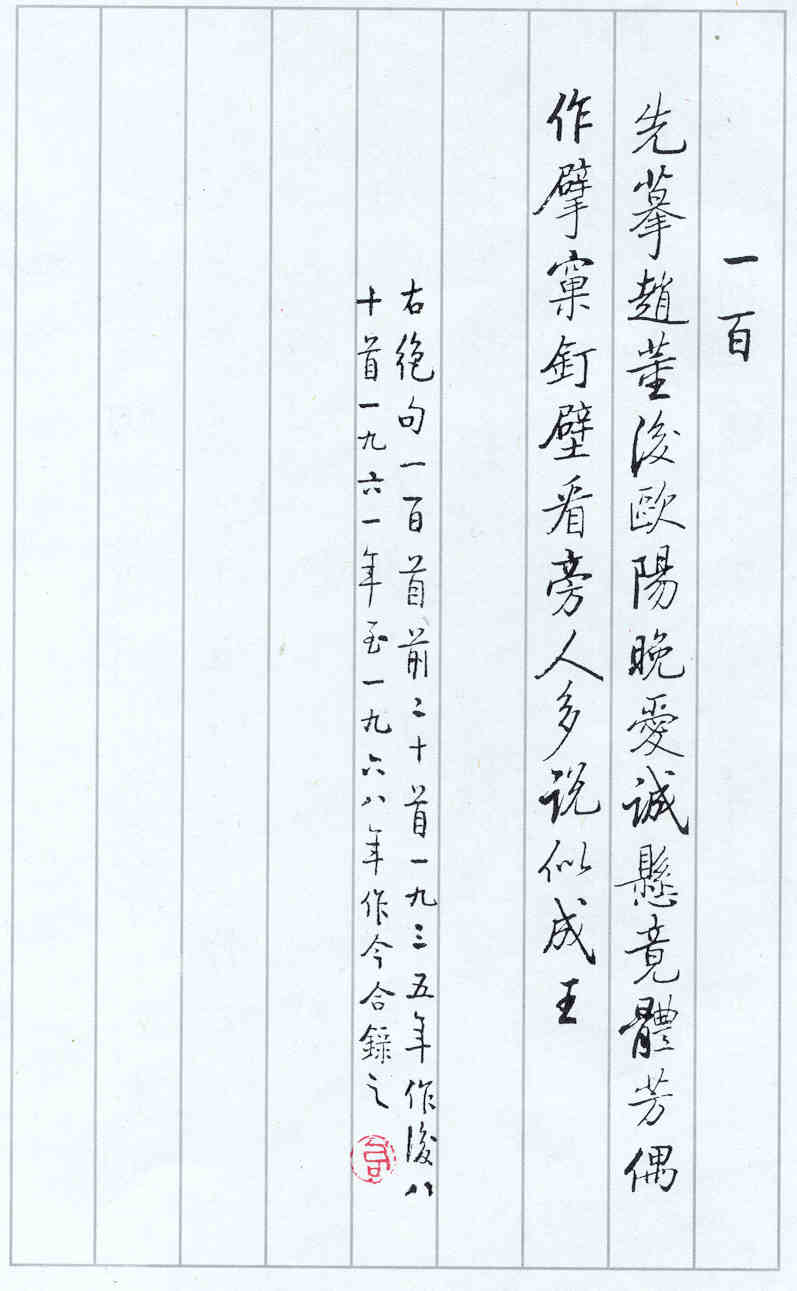 一百
先摹趙董後歐陽晚愛誠懸竟體芳偶
作擘窠釘壁看旁人多说似成王
右絶句一百首前二十首一九三五年作後八
十首一九六一年至一九六八年作今合録之